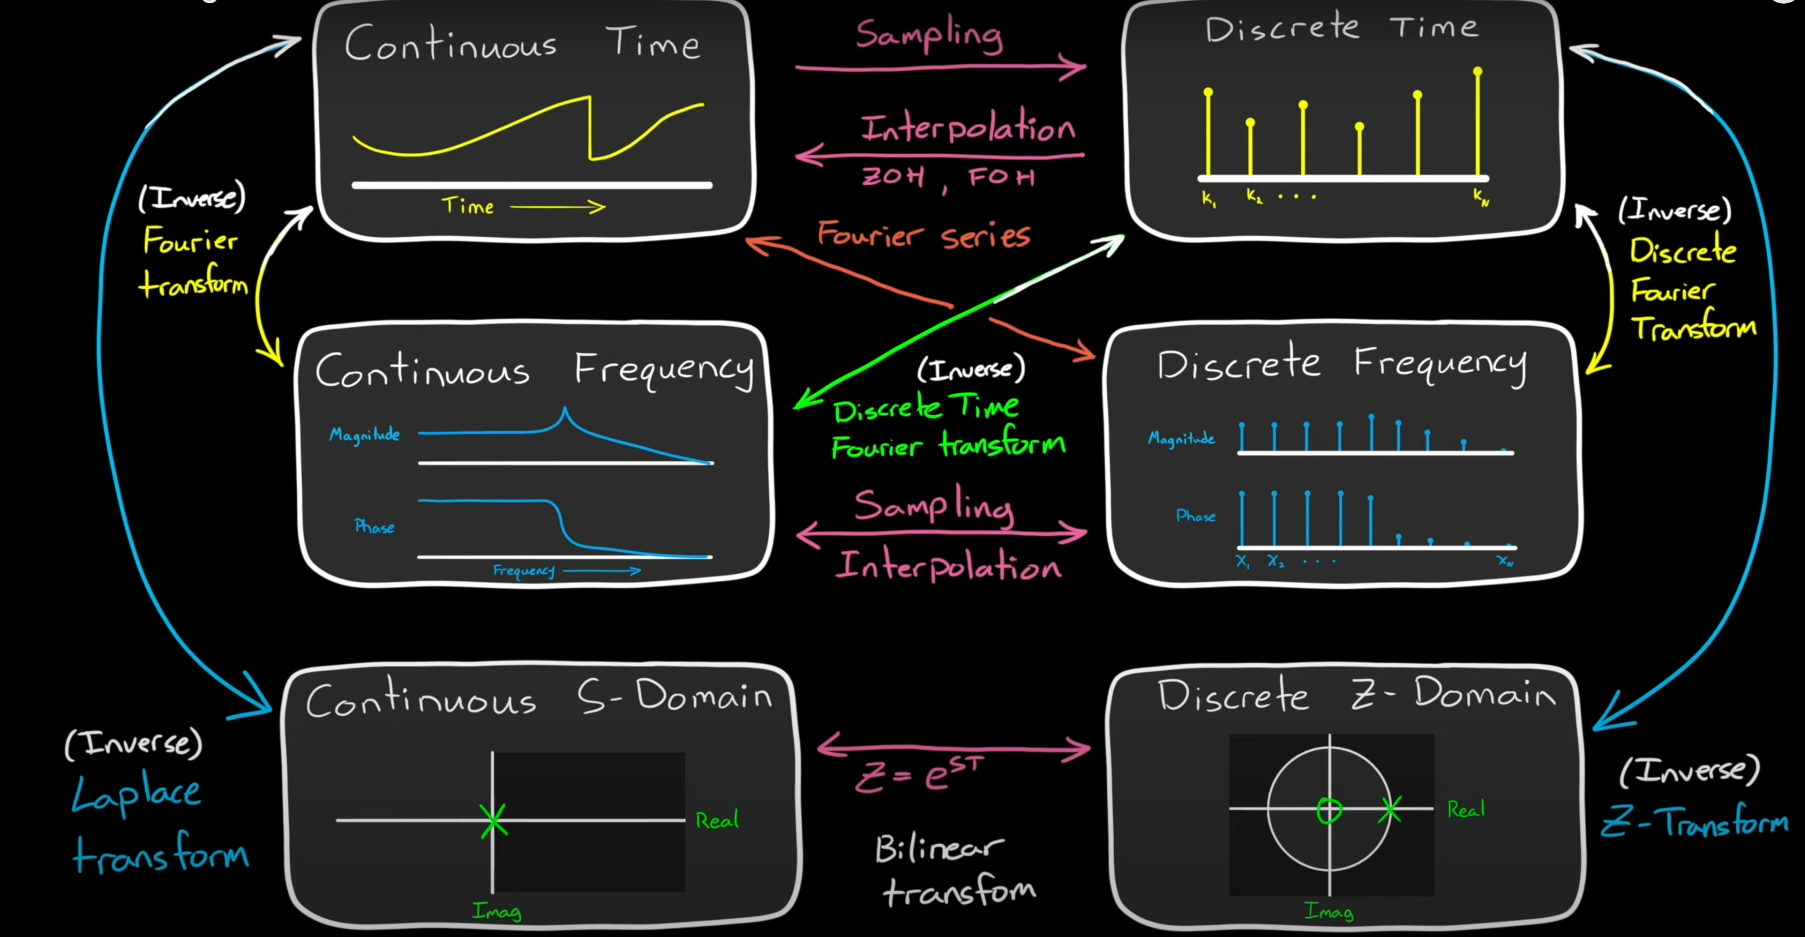 Continuous Time
Time
Sampling
Interpolation
ZOH, FOH
Discrete Time
K1 K2 ... KN
(Inverse)
Fourier
transform
Fourier series
(Inverse)
Discrete
Fourier
Transform
Continuous Frequency
Magnitude
Phase
Frequency
(Inverse)
Discrete Time
Fourier transform
Sampling
Interpolation
Discrete Frequency
Magnitude
Phase
X1 X2 ... XN
(Inverse)
Laplace
transform
Continuous S-Domain
Real
Imag
Z = e^ST
Bilinear
transfom
Discrete Z-Domain
Real
Imag
(Inverse)
Z-Transform